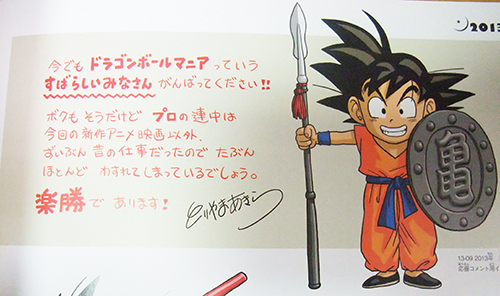 2013
今でも ドラゴンボールマニア っていう
すばらしいみなさん がんばってください!!
ボクも そうだけど プロの連中は
今回の新作アニメ映画以外、
ずいぶん 昔の仕事だったので たぶん
ほとんど わすれてしまっているでしょう。
楽勝で あります!
とりやまあきら
亀
13-09 2013年
応援コメント